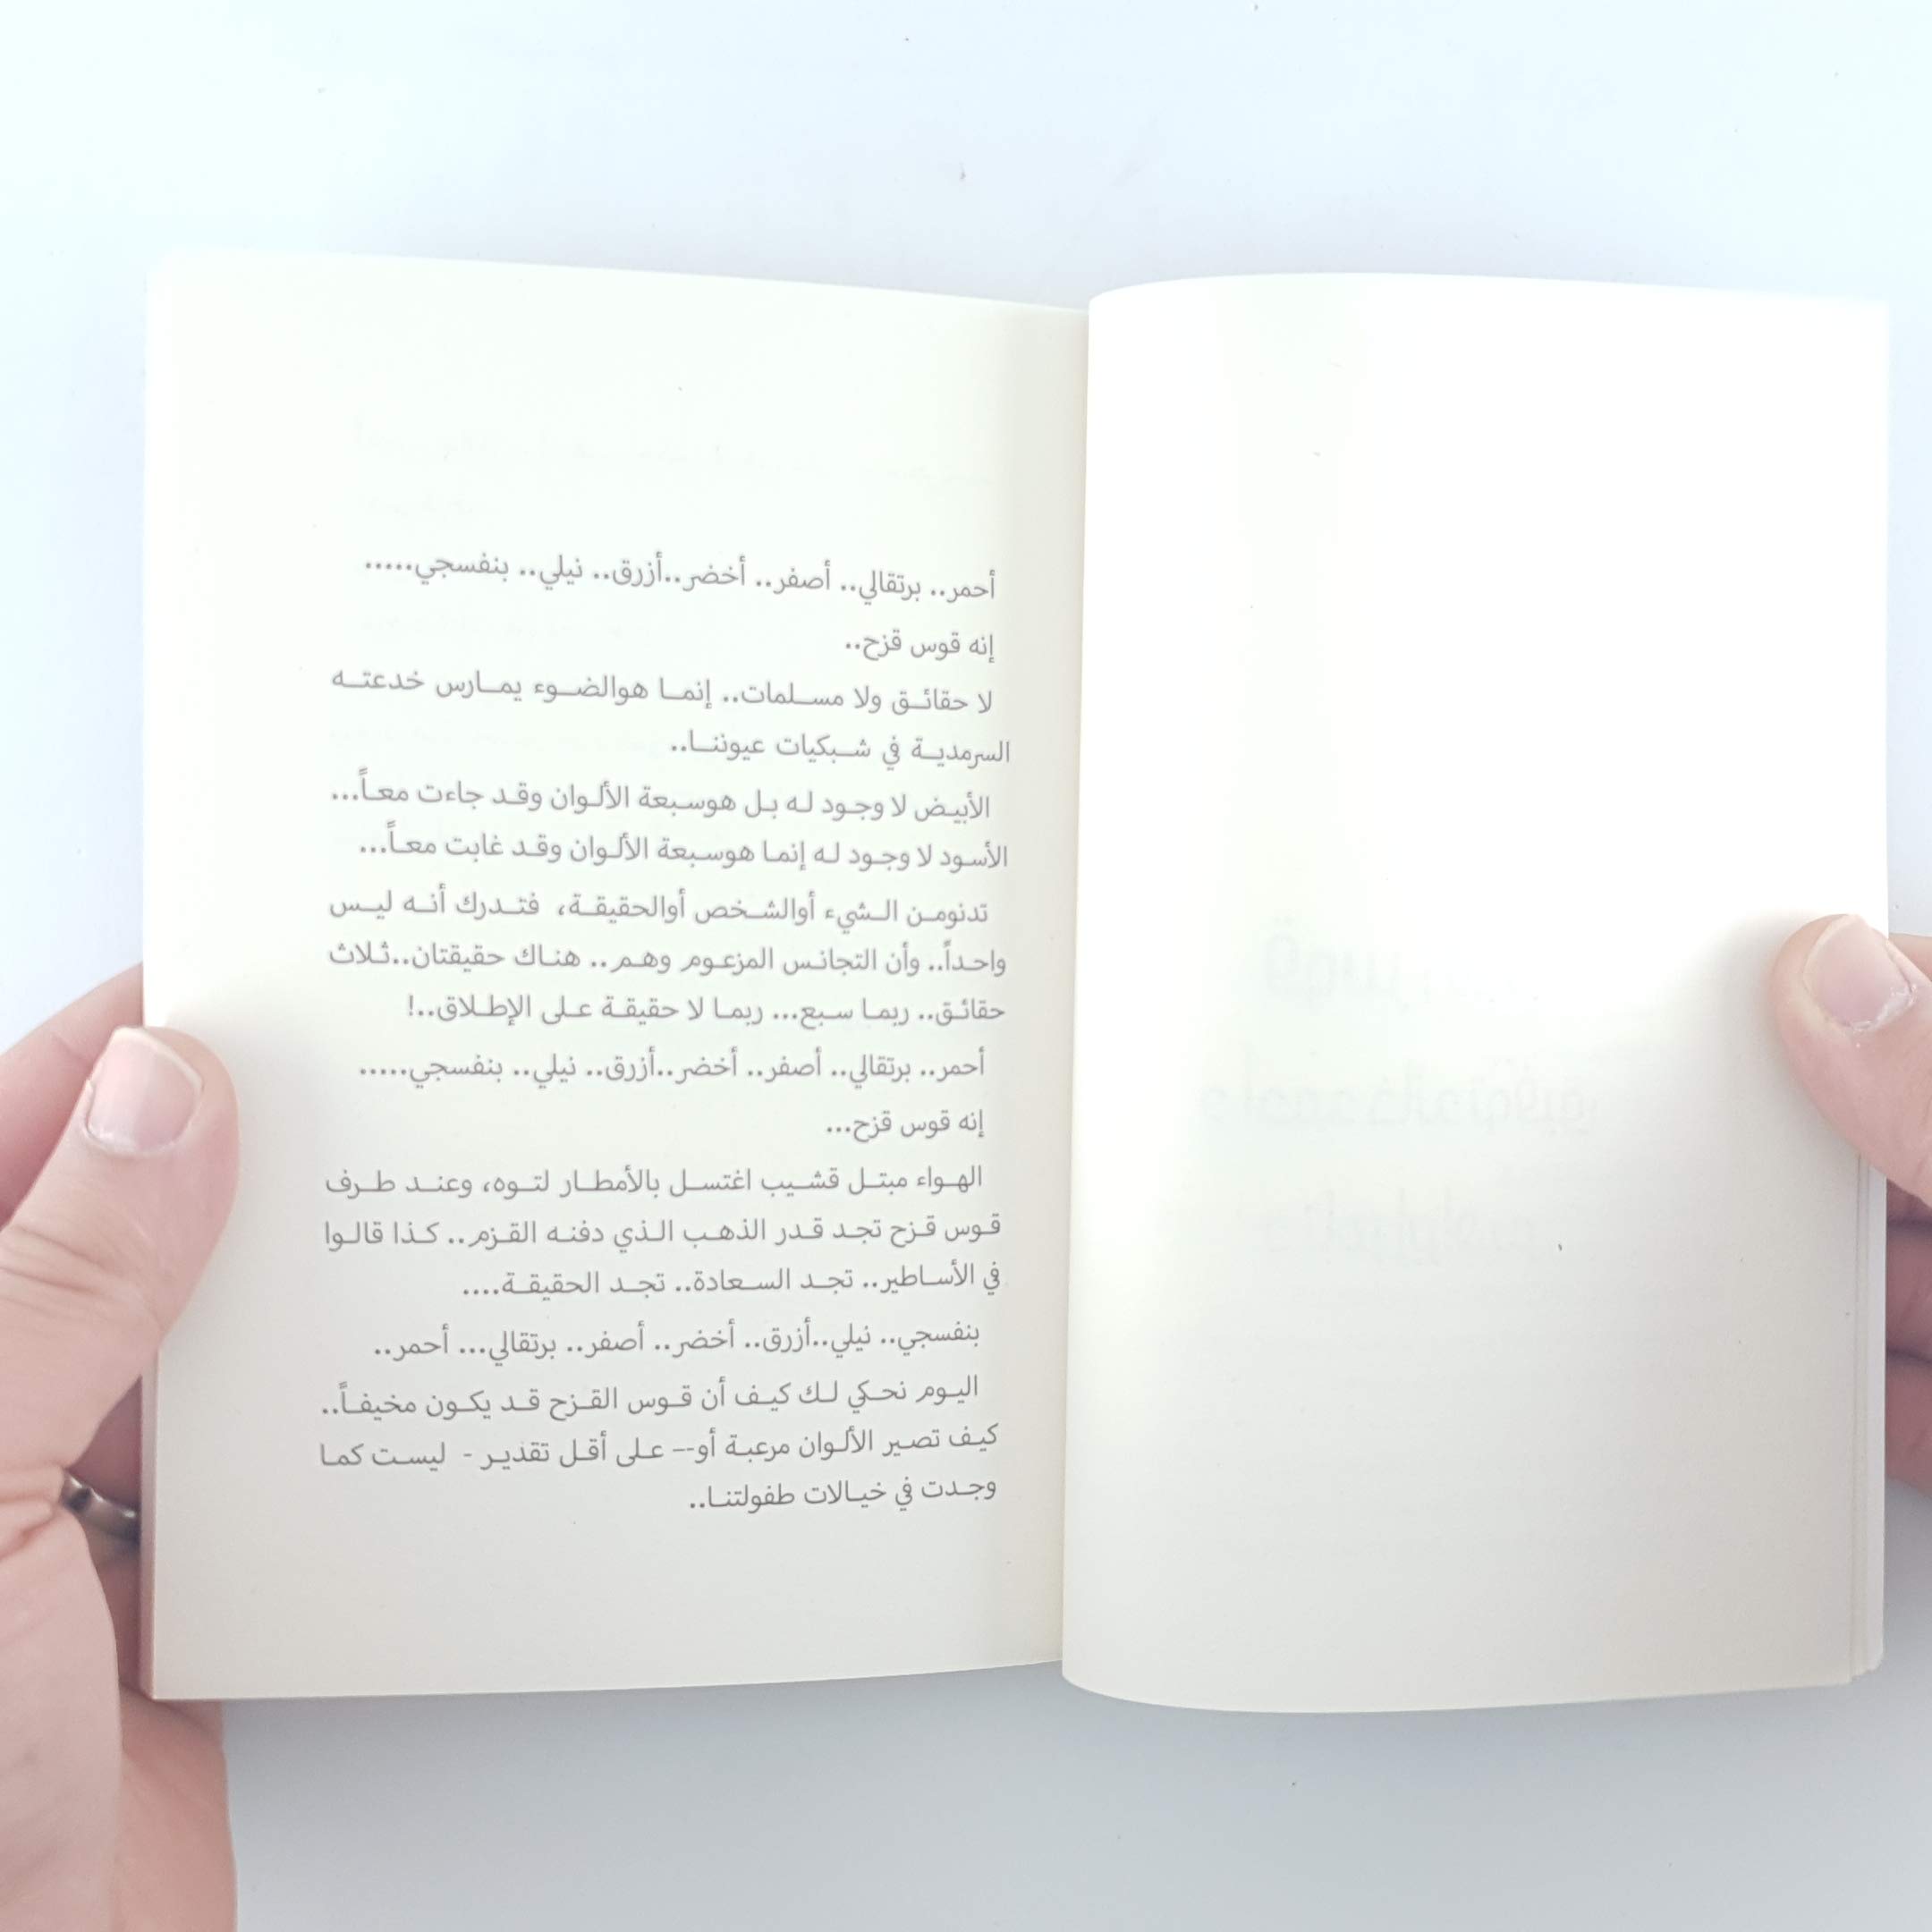 أحمر.. برتقالي.. أصفر.. أخضر..أزرق.. نيلي.. بنفسجي.....
إنه قوس قزح..
لا حقائق ولا مسلمات.. إنما هوالضوء يمارس خدعته
السرمدية في شبكيات عيوننا..
الأبيض لا وجود له بل هوسبعة الألوان وقد جاءت معاً...
الأسود لا وجود له إنما هوسبعة الألوان وقد غابت معاً...
تدنومن الشيء أوالشخص أوالحقيقة، فتدرك أنه ليس
واحداً.. وأن التجانس المزعوم وهم.. هناك حقيقتان..ثلاث
حقائق.. ربما سبع... ربما لا حقيقة على الإطلاق..!
أحمر.. برتقالي.. أصفر.. أخضر..أزرق.. نيلي.. بنفسجي.....
إنه قوس قزح...
الهواء مبتل قشيب اغتسل بالأمطار لتوه، وعند طرف
قوس قزح تجد قدر الذهب الذي دفنه القزم.. كذا قالوا
في الأساطير.. تجد السعادة.. تجد الحقيقة....
بنفسجي.. نيلي..أزرق.. أخضر.. أصفر.. برتقالي... أحمر..
اليوم نحكي لك كيف أن قوس القزح قد يكون مخيفاً..
كيف تصير الألوان مرعبة أو-– على أقل تقدير - ليست كما
وجدت في خيالات طفولتنا..